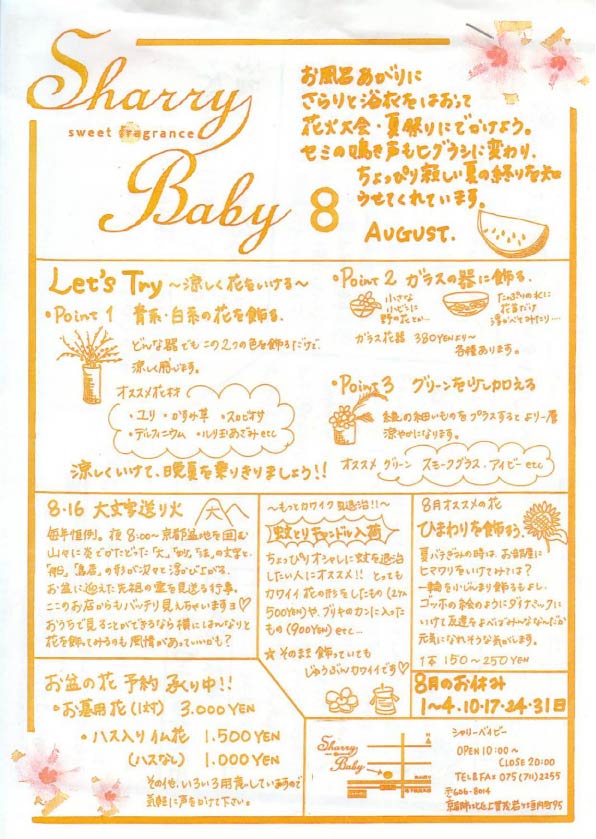 Sharry
sweet fragrance
Baby 8
お風呂あがりに
さらりと浴衣をはおって
花火大会・夏祭りにでかけよう。
セミの鳴き声もヒグラシに変わり、
ちょっぴり寂しい夏の終りを知
らせてくれています。
AUGUST.
Let's Try 〜涼しく花をいける〜
・Point 1 青系・白系の花を飾る。
どんな器でもこの2つの色を飾るだけで、
涼しく感じます。
オススメ花材
・ユリ・かすみ草・スカビオサ
・デルフィニウム・ルリ玉あざみ etc
・Point 2 ガラスの器に飾る。
小さな
小ビンに
野の花とか…
たっぷりの水に
花首だけ
浮かべてみたり….
ガラス花器 380YENより〜
各種あります。
・Point 3 グリーンを少し加える
緑の細いものをプラスするとより一層
涼やかになります。
オススメ グリーン スモークグラス、アイビー etc
涼しくいけて、晩夏を乗りきりましょう!!
8・16 大文字送り火
毎年恒例。夜8:00〜京都盆地を囲む
山々に炎でかたどった「大」「妙」「法」の文字と、
「船」「鳥居」の形が次々と浮かび上がる。
お盆に迎えた先祖の霊を見送る行事。
ここのお店からもバッチリ見えちゃいますョ♡
おうちで見ることができるなら横にはんなりと
花を飾ってみるのも風情があっていいかも?
〜もっとカワイク虫退治!!〜
蚊とりキャンドル入荷
ちょっぴりオシャレに蚊を退治
したい人にオススメ!! とっても
カワイイ花の形をしたもの(2ケ入
500YEN)や、ブリキのカンに入った
もの(900YEN) etc…
★そのまま飾っていても
じゅうぶんカワイイです♡
8月オススメの花
ひまわりを飾ろう。
夏バテぎみの時は、お部屋に
ヒマワリをいけてみては?
一輪を小じんまり飾るもよし、
ゴッホの絵のようにダイナミックに
いけて友達をよべばみーんななんだか
元気になれそうな気がします。
1本 150〜250YEN
8月のお休み
1〜4・10・17・24・31日
お盆の花 予約承り中!!
・お墓用花(1対) 3.000YEN
・ハス入り仏花 1.500YEN
(ハスなし) 1.000YEN
その他、いろいろ用意していますので
気軽に声をかけて下さい。
Sharry
Baby
シャリーベイビー
OPEN 10:00〜
CLOSE 20:00
TEL&FAX 075(711)2255
〒606-8014